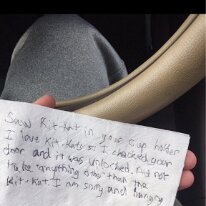 Saw Kit-Kat in your cup holder
I love Kit-Kats so I checked your
door and it was unlocked. Did not
take anything other than the
Kit-Kat I am sorry and hungry